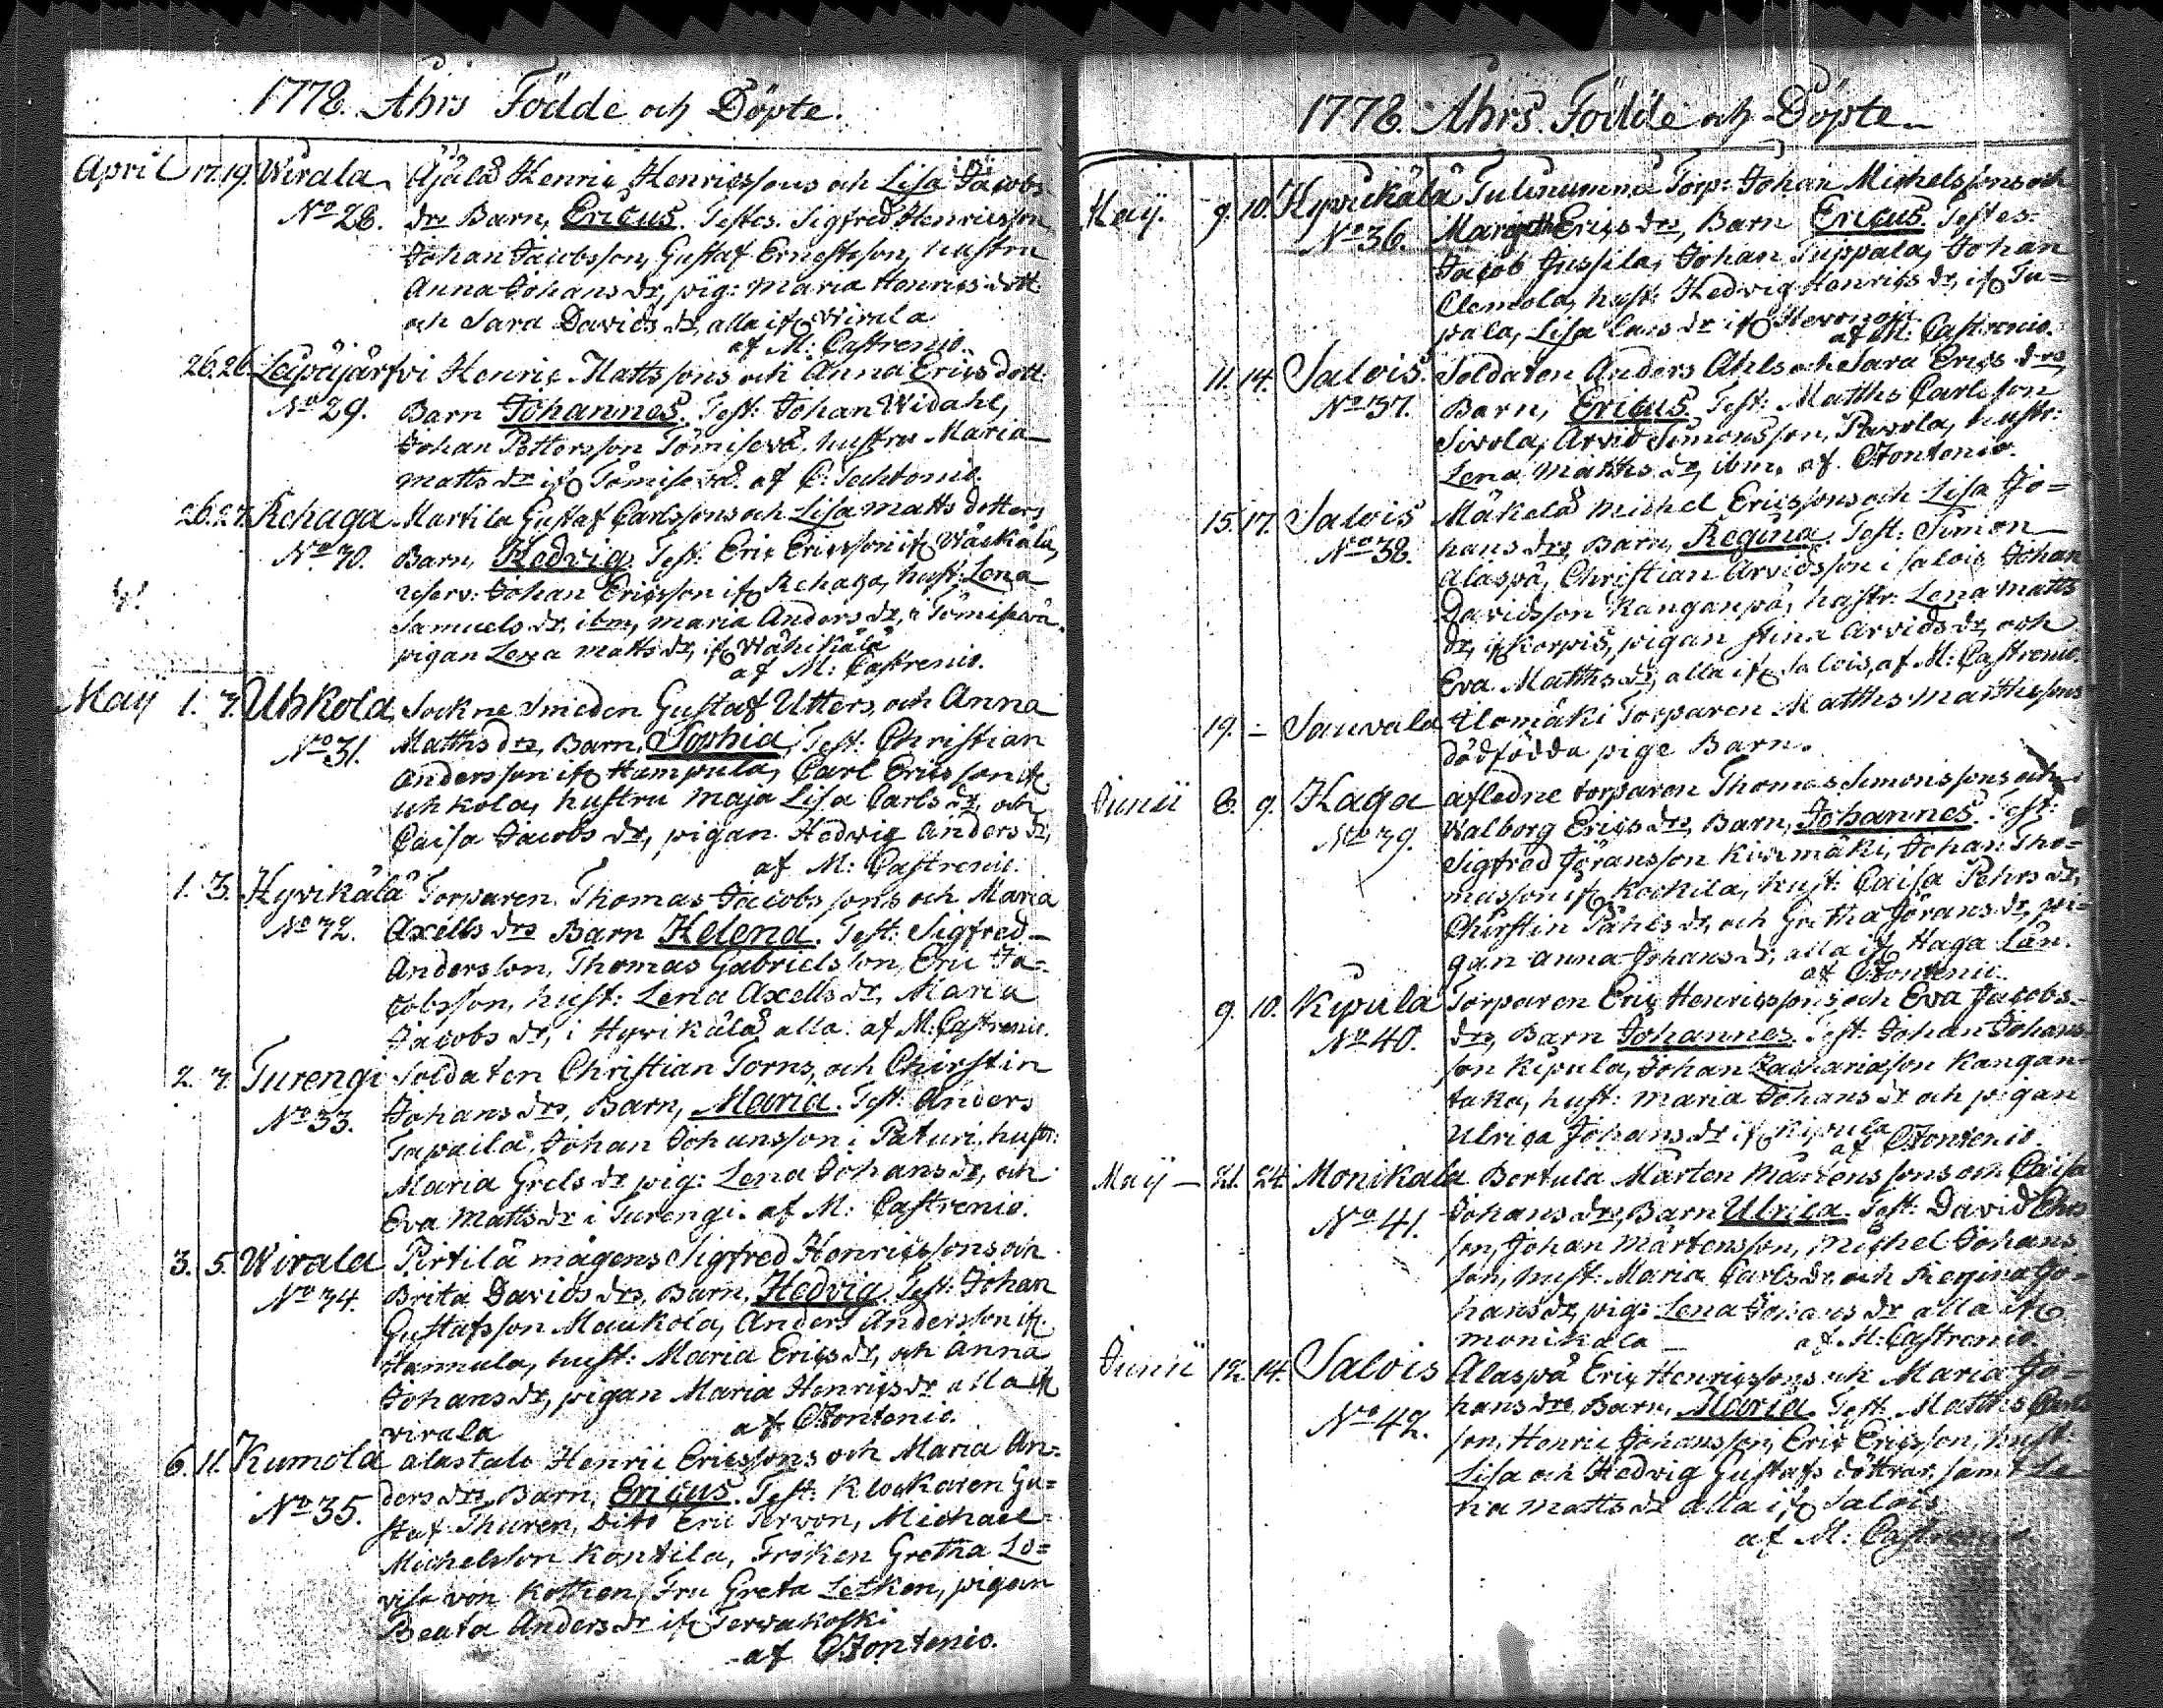 1778. Åhrs Födde och Döpte.
April 17. 19. Wirala, Äjälä Henric Henricssons och Lisa Jacobs
No 28. drs Barn, Ericus. Testes. Sigfred Henricsson
Johan Jacobsson, Gustaf Ernestsson, hustru
Anna Johans dr, pig: Maria Henrics dott.
och Sara Davids dr, alla ifr Wirala
af M: Castrenio.
26. 26. Leppäjärfvi Henric Mattssons och Anna Erics dott.
No 29. Barn Johannes. Test: Johan Widahl,
Johan Pettersson Tömisevä, hustru Maria
Matts dr ifr Tömisevä. af C:
26. 27. Rehaga Martila Gustaf Carlssons och Lisa Matts dotters
No 30. Barn, Hedvig. Test: Eric Ericsson ifr
reserv: Johan Ericsson ifr Rehaga, hust: Lena
Samuels dr, ibm, Maria Anders dr, i Tömisevä.
pigan Lena Matts dr, ifr Wähikälä
af M: Castrenio.
May 1. 3. Uhkola, Sockne Smeden Gustaf Utters, och Anna
No 31. Matths drs, Barn, Sophia, Test: Christian
Andersson ifr Hampula, Carl Ericsson ifr
Uhkola, hustru Maja Lisa Carls dr, och
Caisa Jacobs dr, pigan Hedvig Anders dr,
af M: Castrenio.
1. 3. Hyvikälä Torparen Thomas Jacobssons och Maria
No 32. Axells drs Barn Helena. Test: Sigfred
Andersson, Thomas Gabrielsson, Eric Ja-
cobsson, hust: Lena Axells dr, Maria
Jacobs dr, i Hyvikälä alla. af M: Castrenio.
2. 3. Turengi Soldaten Christian Torns, och Chirstin
No 33. Johans drs, Barn, Maria. Test: Anders
Tapaila, Johan Johansson i Paturi, hustr:
Maria Grels dr pig: Lena Johans dr, och
Eva Matts dr i Turengi. af M: Castrenio.
3. 5. Wirala Pirtilä mågens Sigfred Henricssons och
No 34. Brita Davids drs, Barn, Hedvig. Test: Johan
Gustafsson Maukola, Anders Andersson ifr
Hannula, hust: Maria Erics dr, och Anna
Johans dr, pigan Maria Henrics dr alla ifr
virala af O Fontenio.
6. 11. Kumola alastalo Henric Ericssons och Maria An-
No 35. ders drs, Barn, Ericus. Test: Klockaren Gu-
staf Thuren, Dito Eric Tervon, Michael
Michelsson Kontila, Fröken Gretha Lo-
visa von Kothen, Fru Greta Letken, pigan
Beata Anders dr ifr Tervakoski
af O Fontenio.
1778. Åhrs Födde och Döpte
Maij. 9. 10. Hyvickälä Tulinummi Torp: Johan Michelssons och
No 36. Margeth Erics drs, Barn Ericus. Testes:
Jacob Jussila, Johan Tuppala, Johan
Clemola, hust: Hedvig Henrics dr, ifr Tu-
pala, Lisa Lars dr ifr
af M: Castrenio.
11. 14. Salois. Soldaten Anders Ahls och Sara Erics drs,
No 37. Barn, Ericus. Test: Matths Carlsson
Sivola, Arvid Simonsson, Pavola, hustr:
Lena Matths dr, ibm. af O Fontenio.
15. 17. Salois Mäkelä Michel Ericssons och Lisa Jo-
No 38. hans drs, Barn, Regina. Test: Simon
Alaspä, Christian Arvidsson i Salois, Johan
Davidsson Kanganpä, hustr: Lena Matts
dr, ifr Korpis, pigan Stina Arvids dr, och
Eva Matths dr, alla ifr Salois, af M: Castrenio.
19. – Sauvala Ilomäki Torparen Matths Matthessons
dödfödda pige Barn.
Junii 8. 9. Haga afledne torparen Thomas Simonssons och
No 39. Walborg Erics drs, Barn, Johannes. Test:
Sigfred Jöransson Kivimäki, Johan Tho-
masson ifr Kockila, hust: Caisa Pehrs dr,
Chirstin Påhls dr, och Gretha Jörans dr, pi-
gan Anna Johans dr, alla ifr Haga Län.
af O Fontenio.
9. 10. Kipula Torparen Eric Henricssons och Eva Jacobs
No 40. drs, Barn Johannes. Test: Johan Johans-
son Kipula, Johan Zachariasson Kangan-
taka, hust: Maria Johans dr och pigan
Ulrica Johans dr ifr Kipula
af O Fontenio.
Maij – 21. 24. Monikala Bertula Mårten Mårtenssons och Caisa
No 41. Johans drs, Barn Ulrica. Test: David Ehrs
son, Johan Mårtensson, Michel Johans
son, hust: Maria Carls dr och Regina Jo-
hans dr, pig: Lena Johans dr alla ifr
monikala – af M: Castrenio.
Junii 12. 14. Salois Alaspä Eric Henricssons och Maria Jo-
No 42. hans drs, Barn, Maria. Test: Matths Carls
son, Henric Johansson, Eric Ericsson, hust:
Lisa och Hedvig Gustafs döttrar, samt Le-
na Matts dr alla ifr Salois
af M: Castrenio